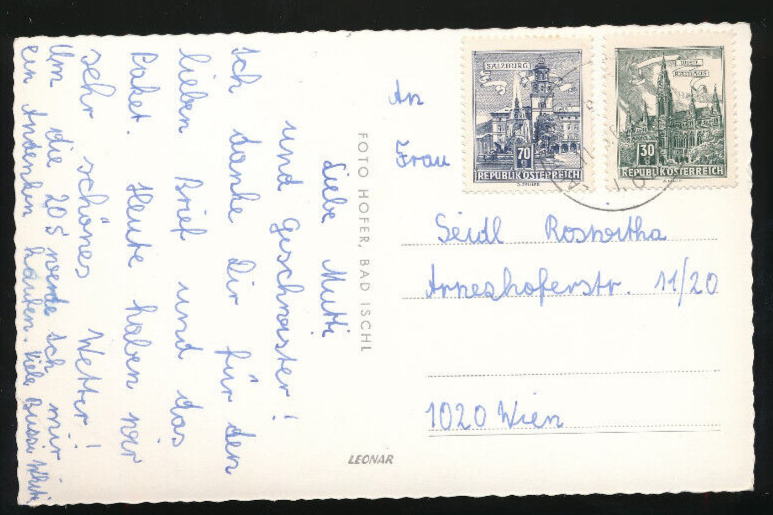 Liebe Mutti
und Geschwister!
Ich danke Dir für den
lieben Brief und das
Paket. Heute haben wir
sehr schönes Wetter!
Um die 20 S werde ich mir
ein Andenken kaufen. Viele Bussi
FOTO HOFER, BAD ISCHL
LEONAR
SALZBURG
70
REPUBLIK ÖSTERREICH
WIEN
RATHAUS
30
REPUBLIK ÖSTERREICH
An
Frau
Seidl Roswitha
Arnezhoferstr. 11/20
1020 Wien